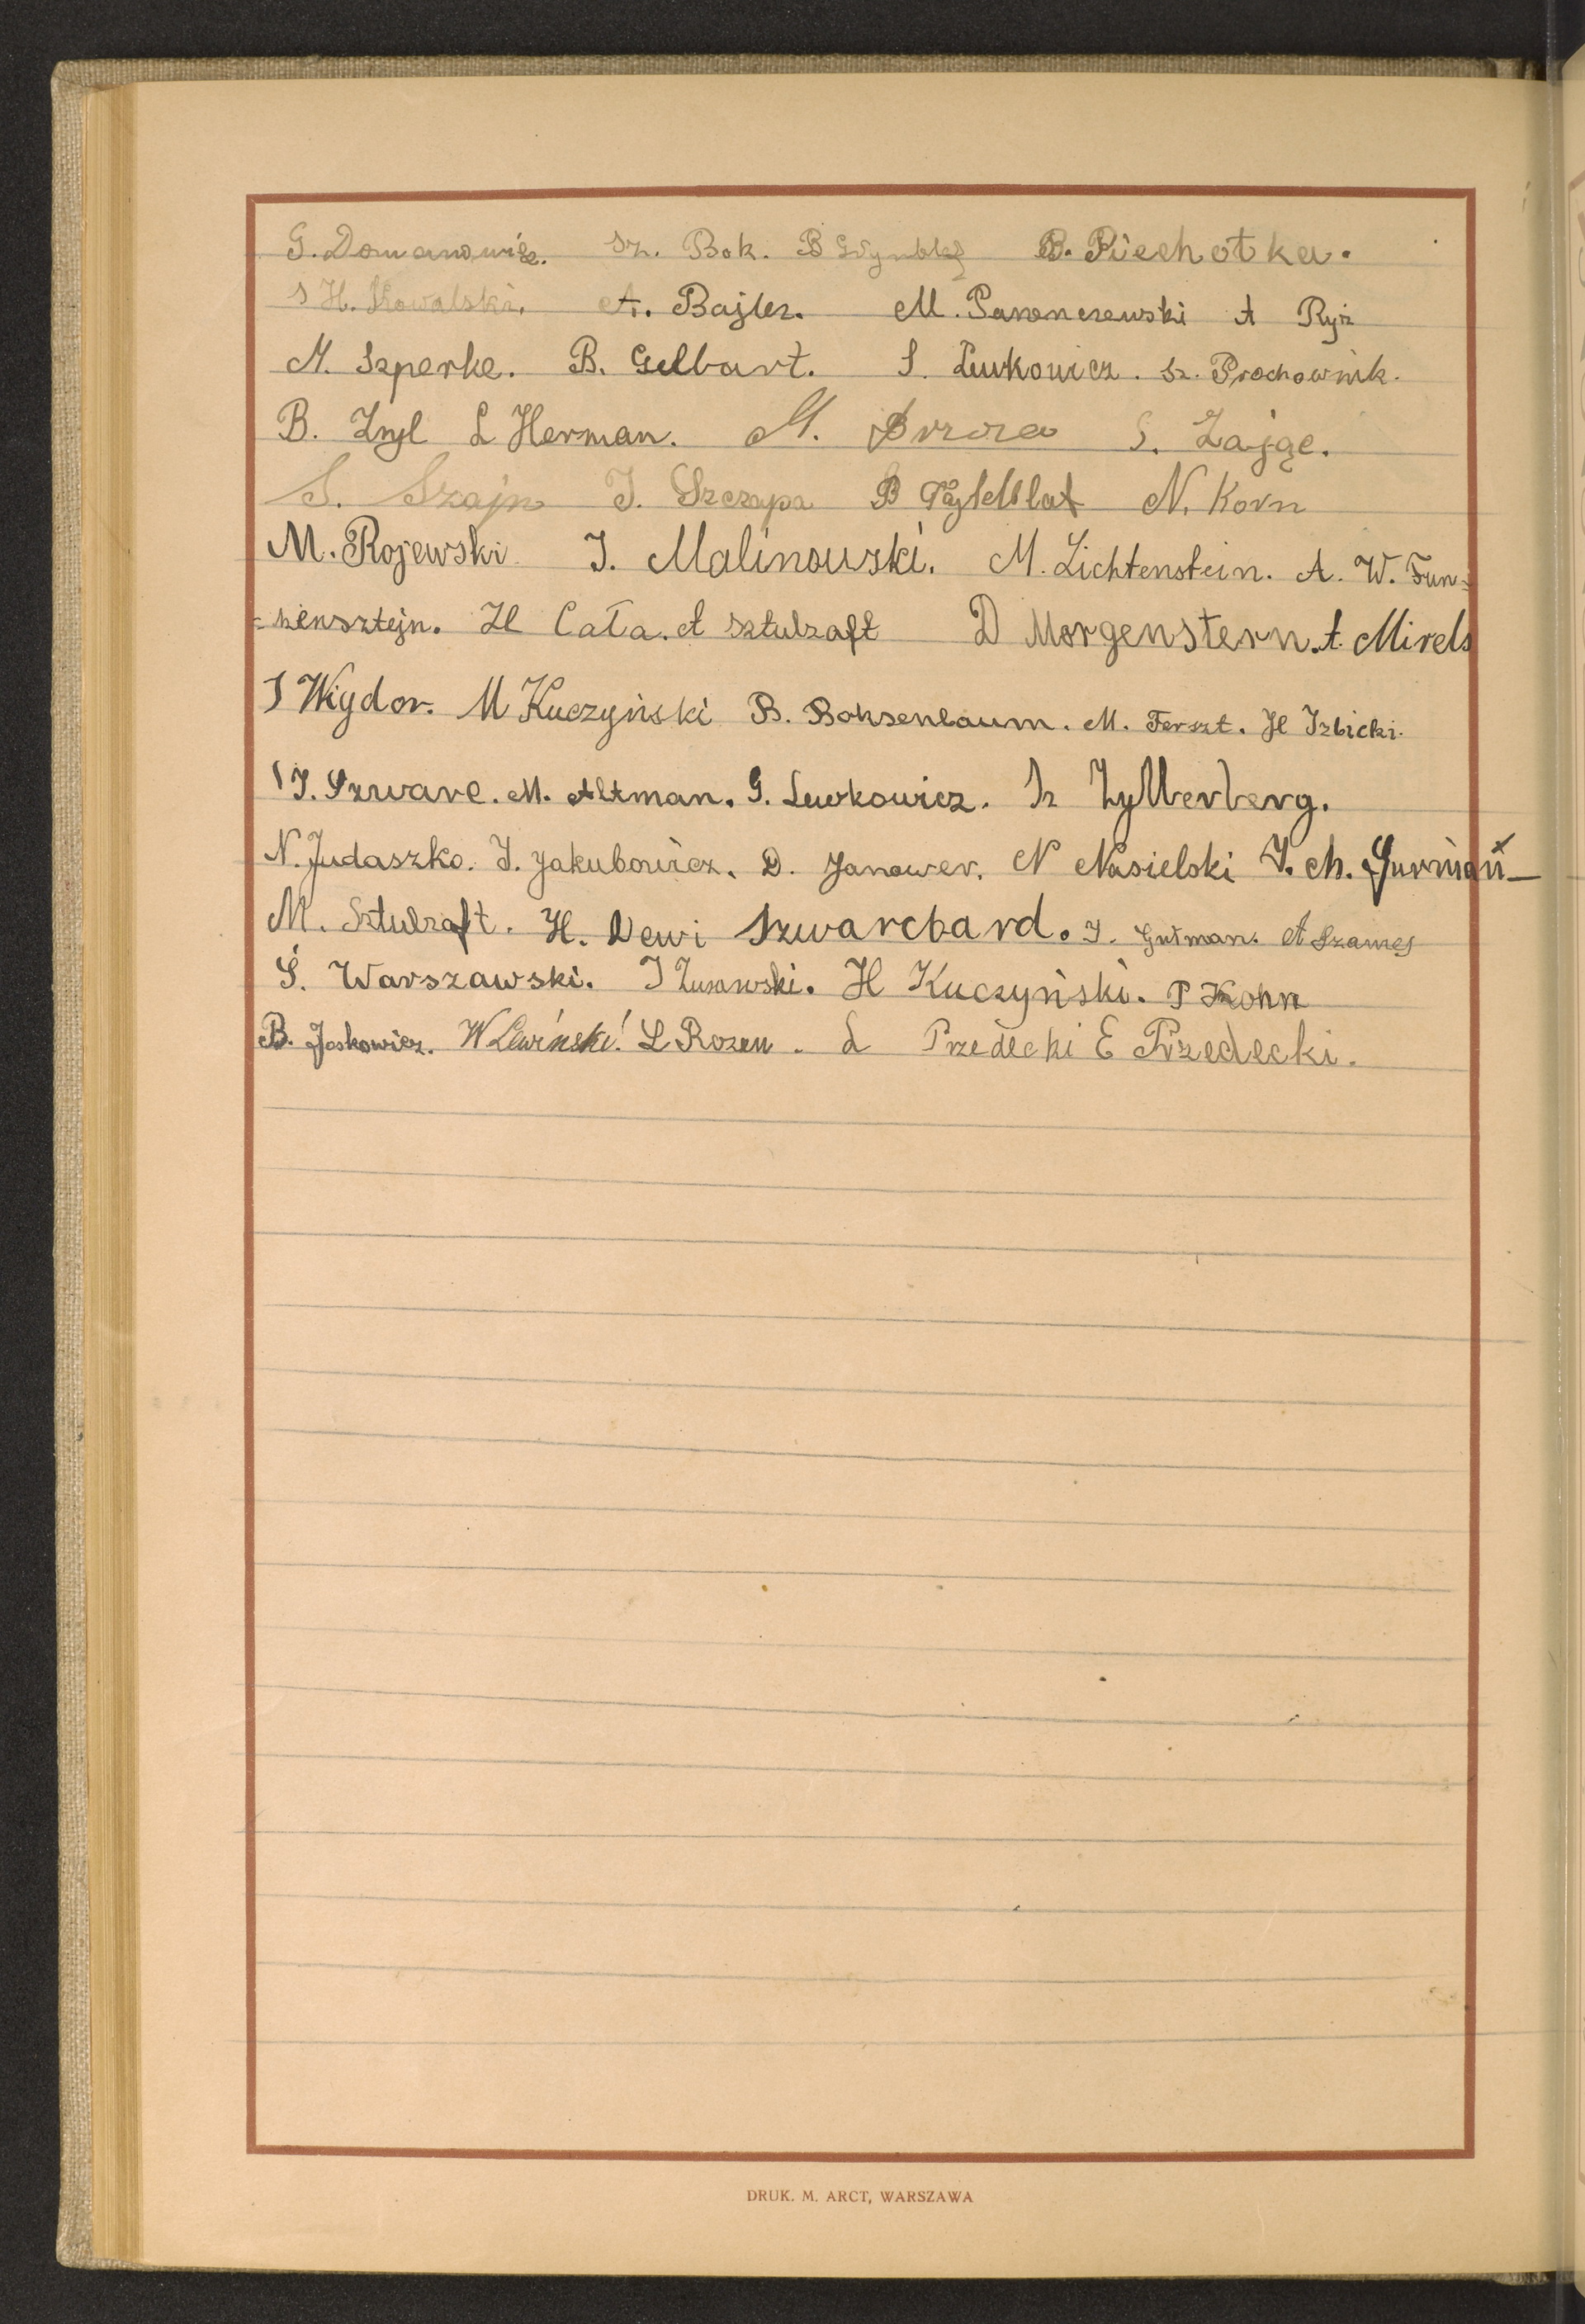 G. Domanowicz. Sz. Bok. B B. Piechotka.
S H. Kowalski. A. Bajler. M. A Ryż
M. Szperke. B. Gelbart. S. Lewkowicz. Sz. Prochownik.
B. Zngl L Herman. M. Brzoza S. Zając.
S. Szajn I. Szczypa B Tajtelblat N. Korn
M. Rojewski I. Malinowski. M. Lichtenstein. A. W. Fun=
=kensztejn. H Cała. A Sztulzaft D Morgenstern. A. Mirels
I Wigdor. M Kuczyński B. Boksenbaum. M. Ferszt. H Izbicki.
I. Szwarc. M. Altman. G. Lewkowicz. Sz Zylberberg.
N. Judaszko. I. Jakubowicz. D. Janower. N Nasielski I. Ch. Furman
M. Sztulzaft. H. Dewi Szwarcbard. I. Gutman. A Szames
S. Warszawski. I H Kuczyński. P Kohn
B. Joskowicz. W Lewiński! L Rozen. L Przedecki E Przedecki.
DRUK. M. ARCT, WARSZAWA